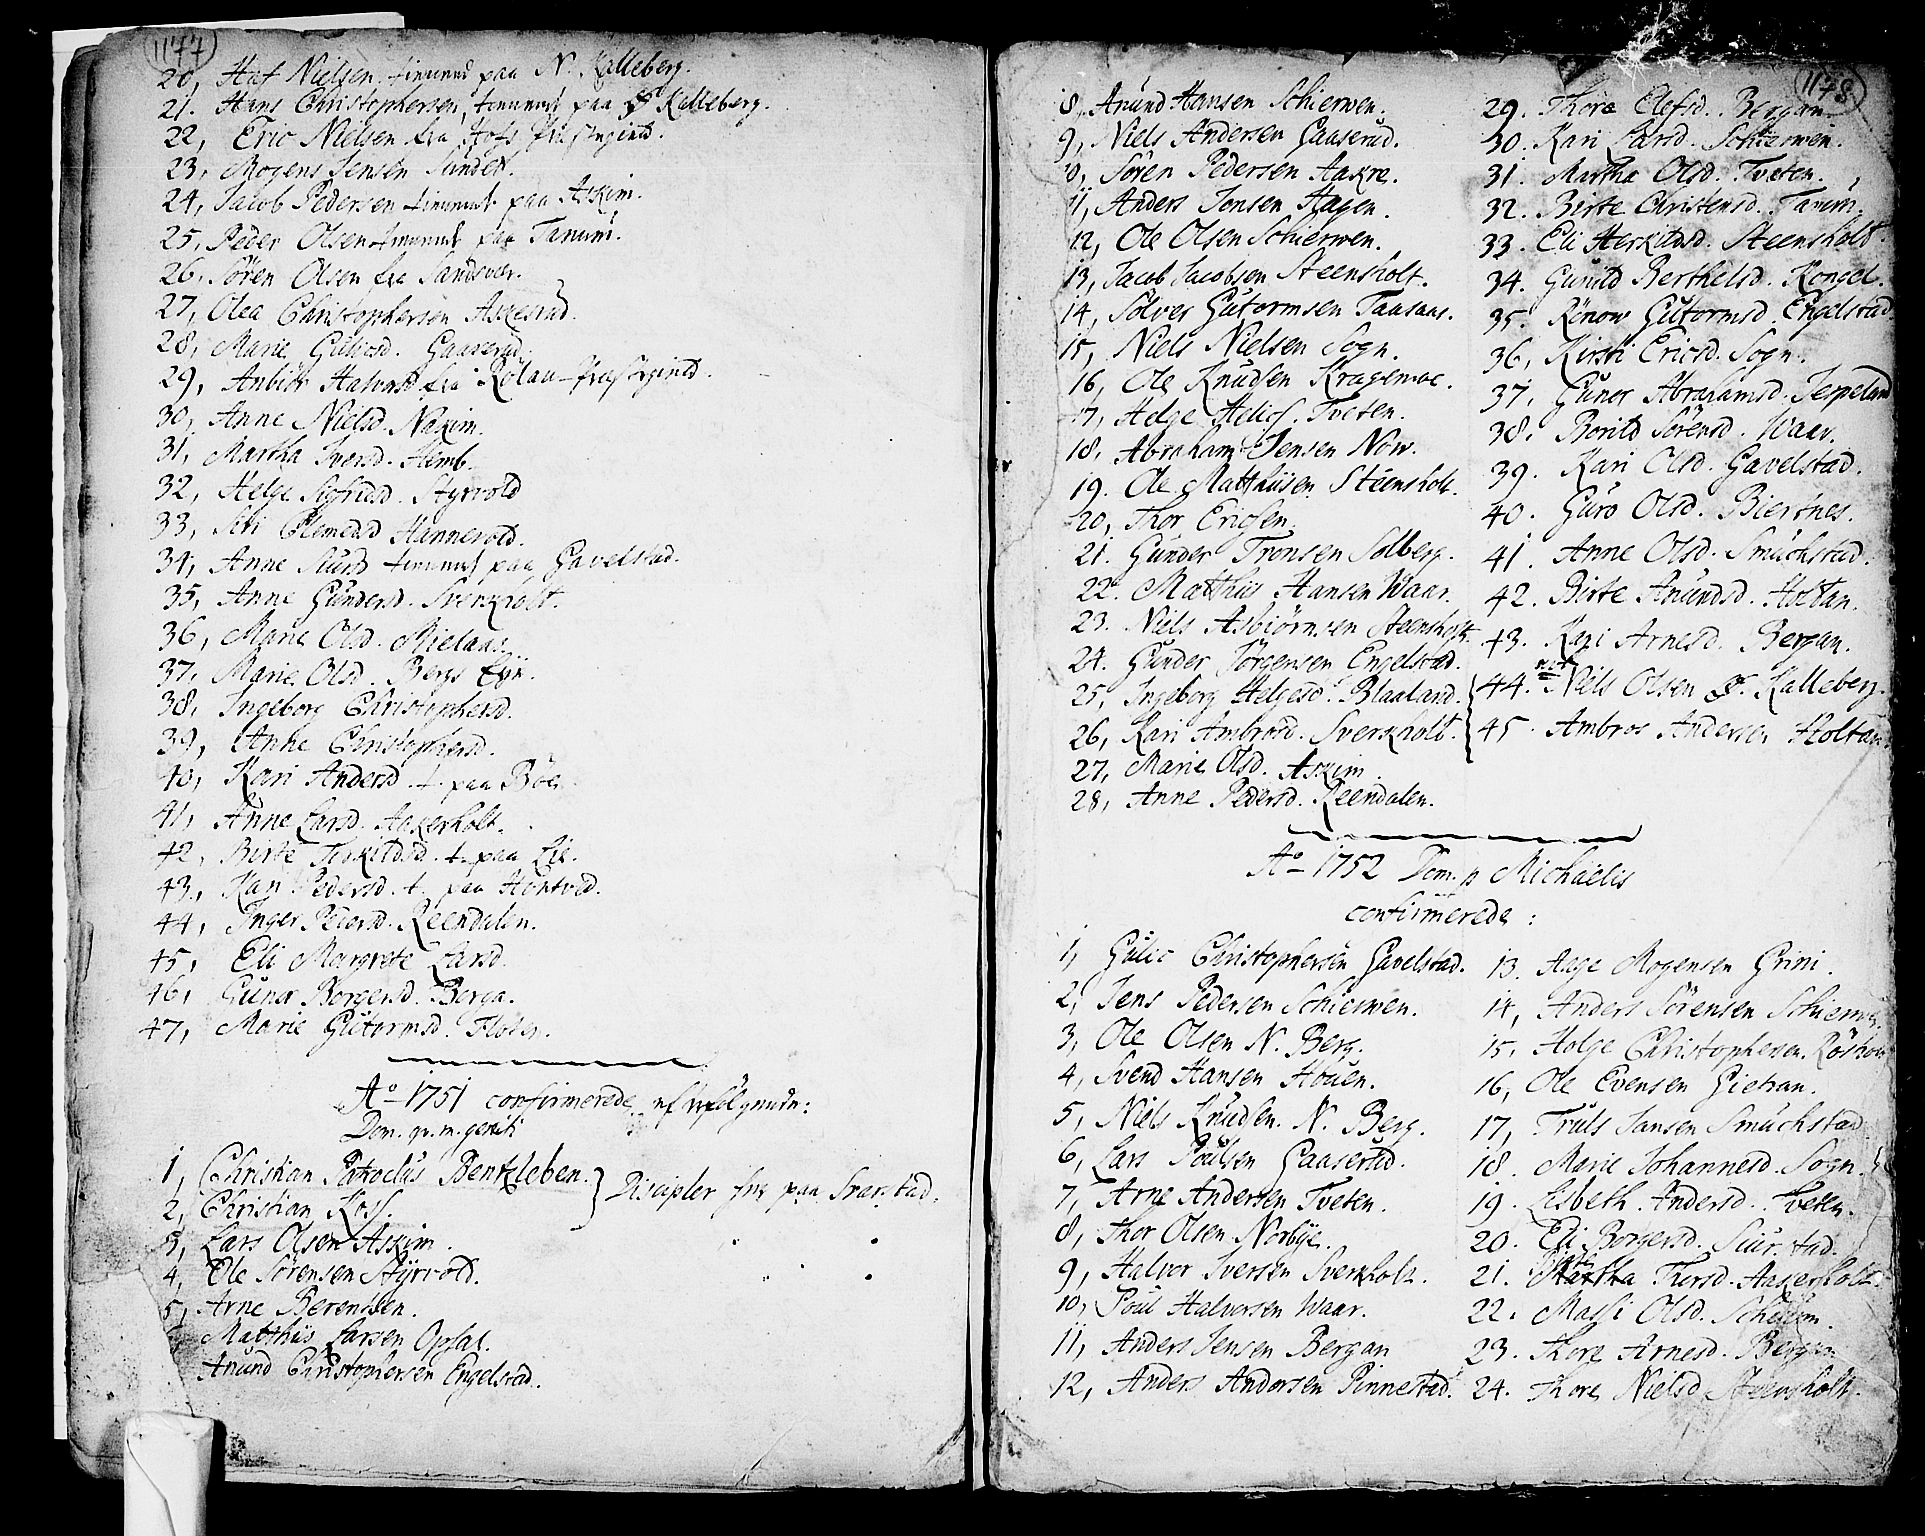 1177
20, Haf Nielsen tienende paa N. Kalleberg.
21. Hans Christophersen, tienende paa S. Kalleberg.
22, Eric Nielsen fra
23, Mogens Jensen Sundet.
24, Jacob Pedersen tienende paa Askim.
25, Peder Olsen tienende paa Tanum.
26. Sören Olsen fra Sandsver.
27, Olea Christophersen Askerud.
28, Marie Guliesd. Gaaserud.
29, Anbiör Halvorsd fra
30, Anne Nielsd. Naxim.
31, Martha Iversd. Hemb.
32, Helge Sigfridsd. Styrvold
33, Siri Clemedsd Hannevold.
34, Anne Sundsd tienende paa Gavelstad.
35, Anne Gundersd. Sverkholt.
36, Marie Olsd. Mielaas.
37, Marie Olsd. Bergs Eye.
38, Ingeborg Christophersd.
39, Anne Christophersd.
40, Kari Andersd. t. paa Böe
41, Anne Larsd. Aakerholt.
42, Birte Terkildsd. t. paa Lie.
43, Kari Pedersd. t. paa Hontvedt.
44, Inger Pedersd. Reendalen.
45, Eli Margrete Larsd.
46, Guner Borgersd. Berga.
47, Marie Gutormsd. Floder.
Ao 1751 confirmerede efterfölgende:
Dom. qv. m. geniti
1, Christian Patroclus Bentzleben.
2, Christian Koss. } Discipler her paa Svarstad.
3, Lars Olsen Askim.
4, Ole Sörensen Styrvold.
5, Arne Berentsen.
Matthis Larsen Opsal.
Anund Christophersen Engelstad.
1178
8, Anund Hansen Schierven.
9, Niels Andersen Gaaserud.
10, Sören Pedersen Aakre.
11, Anders Jonsen Hagen.
12, Ole Olsen Schierven.
13, Jacob Jacobsen Steensholt.
14, Sölver Gutormsen Taasaas.
15, Niels Nielsen Sogn.
16, Ole Knudsen Kragemoe.
17, Helge Heljes. Tveten.
18. Abraham Jensen Now.
19. Ole Matthiisen Steensholt.
20, Thor Ericsen.
21. Gunder Tronsen Solberg.
22. Matthis Hansen Waar.
23. Niels Asbiörnsen Steensholt.
24. Gunder Jörgensen Engelstad.
25, Ingeborg Helgesd. Blaaland.
26, Kari Ambrosd. Sverkholt.
27, Marie Olsd. Askim.
28, Anne Pedersd. Reendalen.
29. Thore Elefsd. Bergan.
30. Kari Larsd. Schierven.
31. Martha Olsd. Tveten.
32. Birte Christensd. Tanum.
33. Eli Herkildsd. Steensholt.
34. Gunild Berthelsd. Kongel.
35. Rönow Gutormsd. Engelstad
36, Kirsti Ericsd. Sogn.
37, Guner Abrahamsd. Jespeland
38. Borild Sörensd. Waar.
39. Kari Olsd. Gavelstad.
40. Guro Olsd. Biertnes.
41. Anne Olsd. Smuchstad.
42. Birte Anundsd. Holtan.
43. Kari Arnesd. Bergan.
44. Niels Olsen S. Kalleberg.
45. Ambros Andersen Holtan
Ao 1752 Dom. p Michaelis
confirmerede:
1, Gulic Christophersen Gavelstad.
2, Jens Pedersen Schierven.
3, Ole Olsen N. Berg.
4, Svend Hansen Houen.
5, Niels Knudsen N. Berg.
6, Lars Poulsen Gaaserud.
7, Arne Andersen Tveten.
8, Thor Olsen Norbye.
9, Halvor Iversen Sverkholt.
10, Poul Halvorsen Waar.
11, Anders Jensen Bergan
12, Anders Andersen Pinnestad.
13. Aage Mogensen Grini.
14, Anders Sörensen Schierven.
15, Holge Christophersen.
16, Ole Evensen Gietran.
17, Truls Jansen Smuchstad
18. Marie Johannesd. Sogn.
19. Lisbeth Andersd. Tveten.
20. Eli Borgersd.
21. Martha Thorsd. Aagerholt.
22. Massi Olsd.
23. Thore Arnesd. Bergan
24. Thore Nielsd Steensholt.